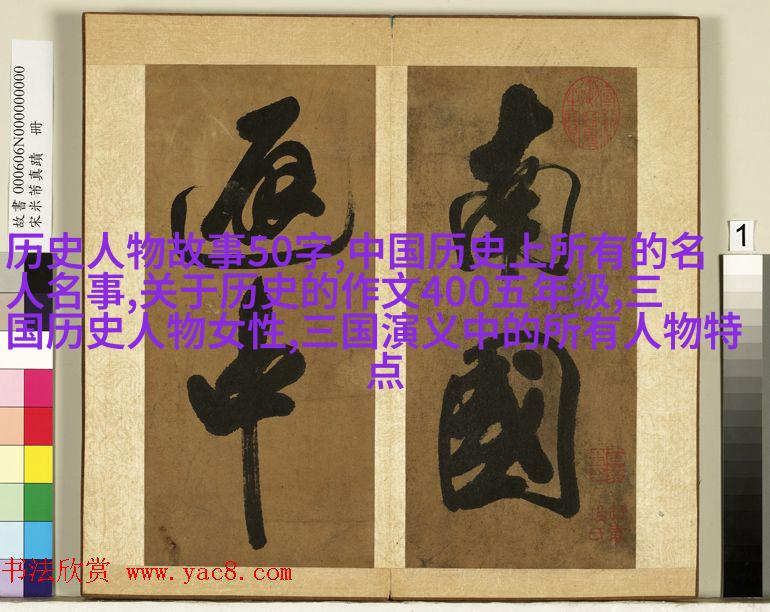 故書 000606N000000000
宋米芾真蹟 冊
南
國
中
1
历史人物故事50字,中国历史上所有的名
人名事,关于历史的作文400五年级,三
国历史人物女性,三国演义中的所有人物特
点
书法欣赏 www.yac8.com